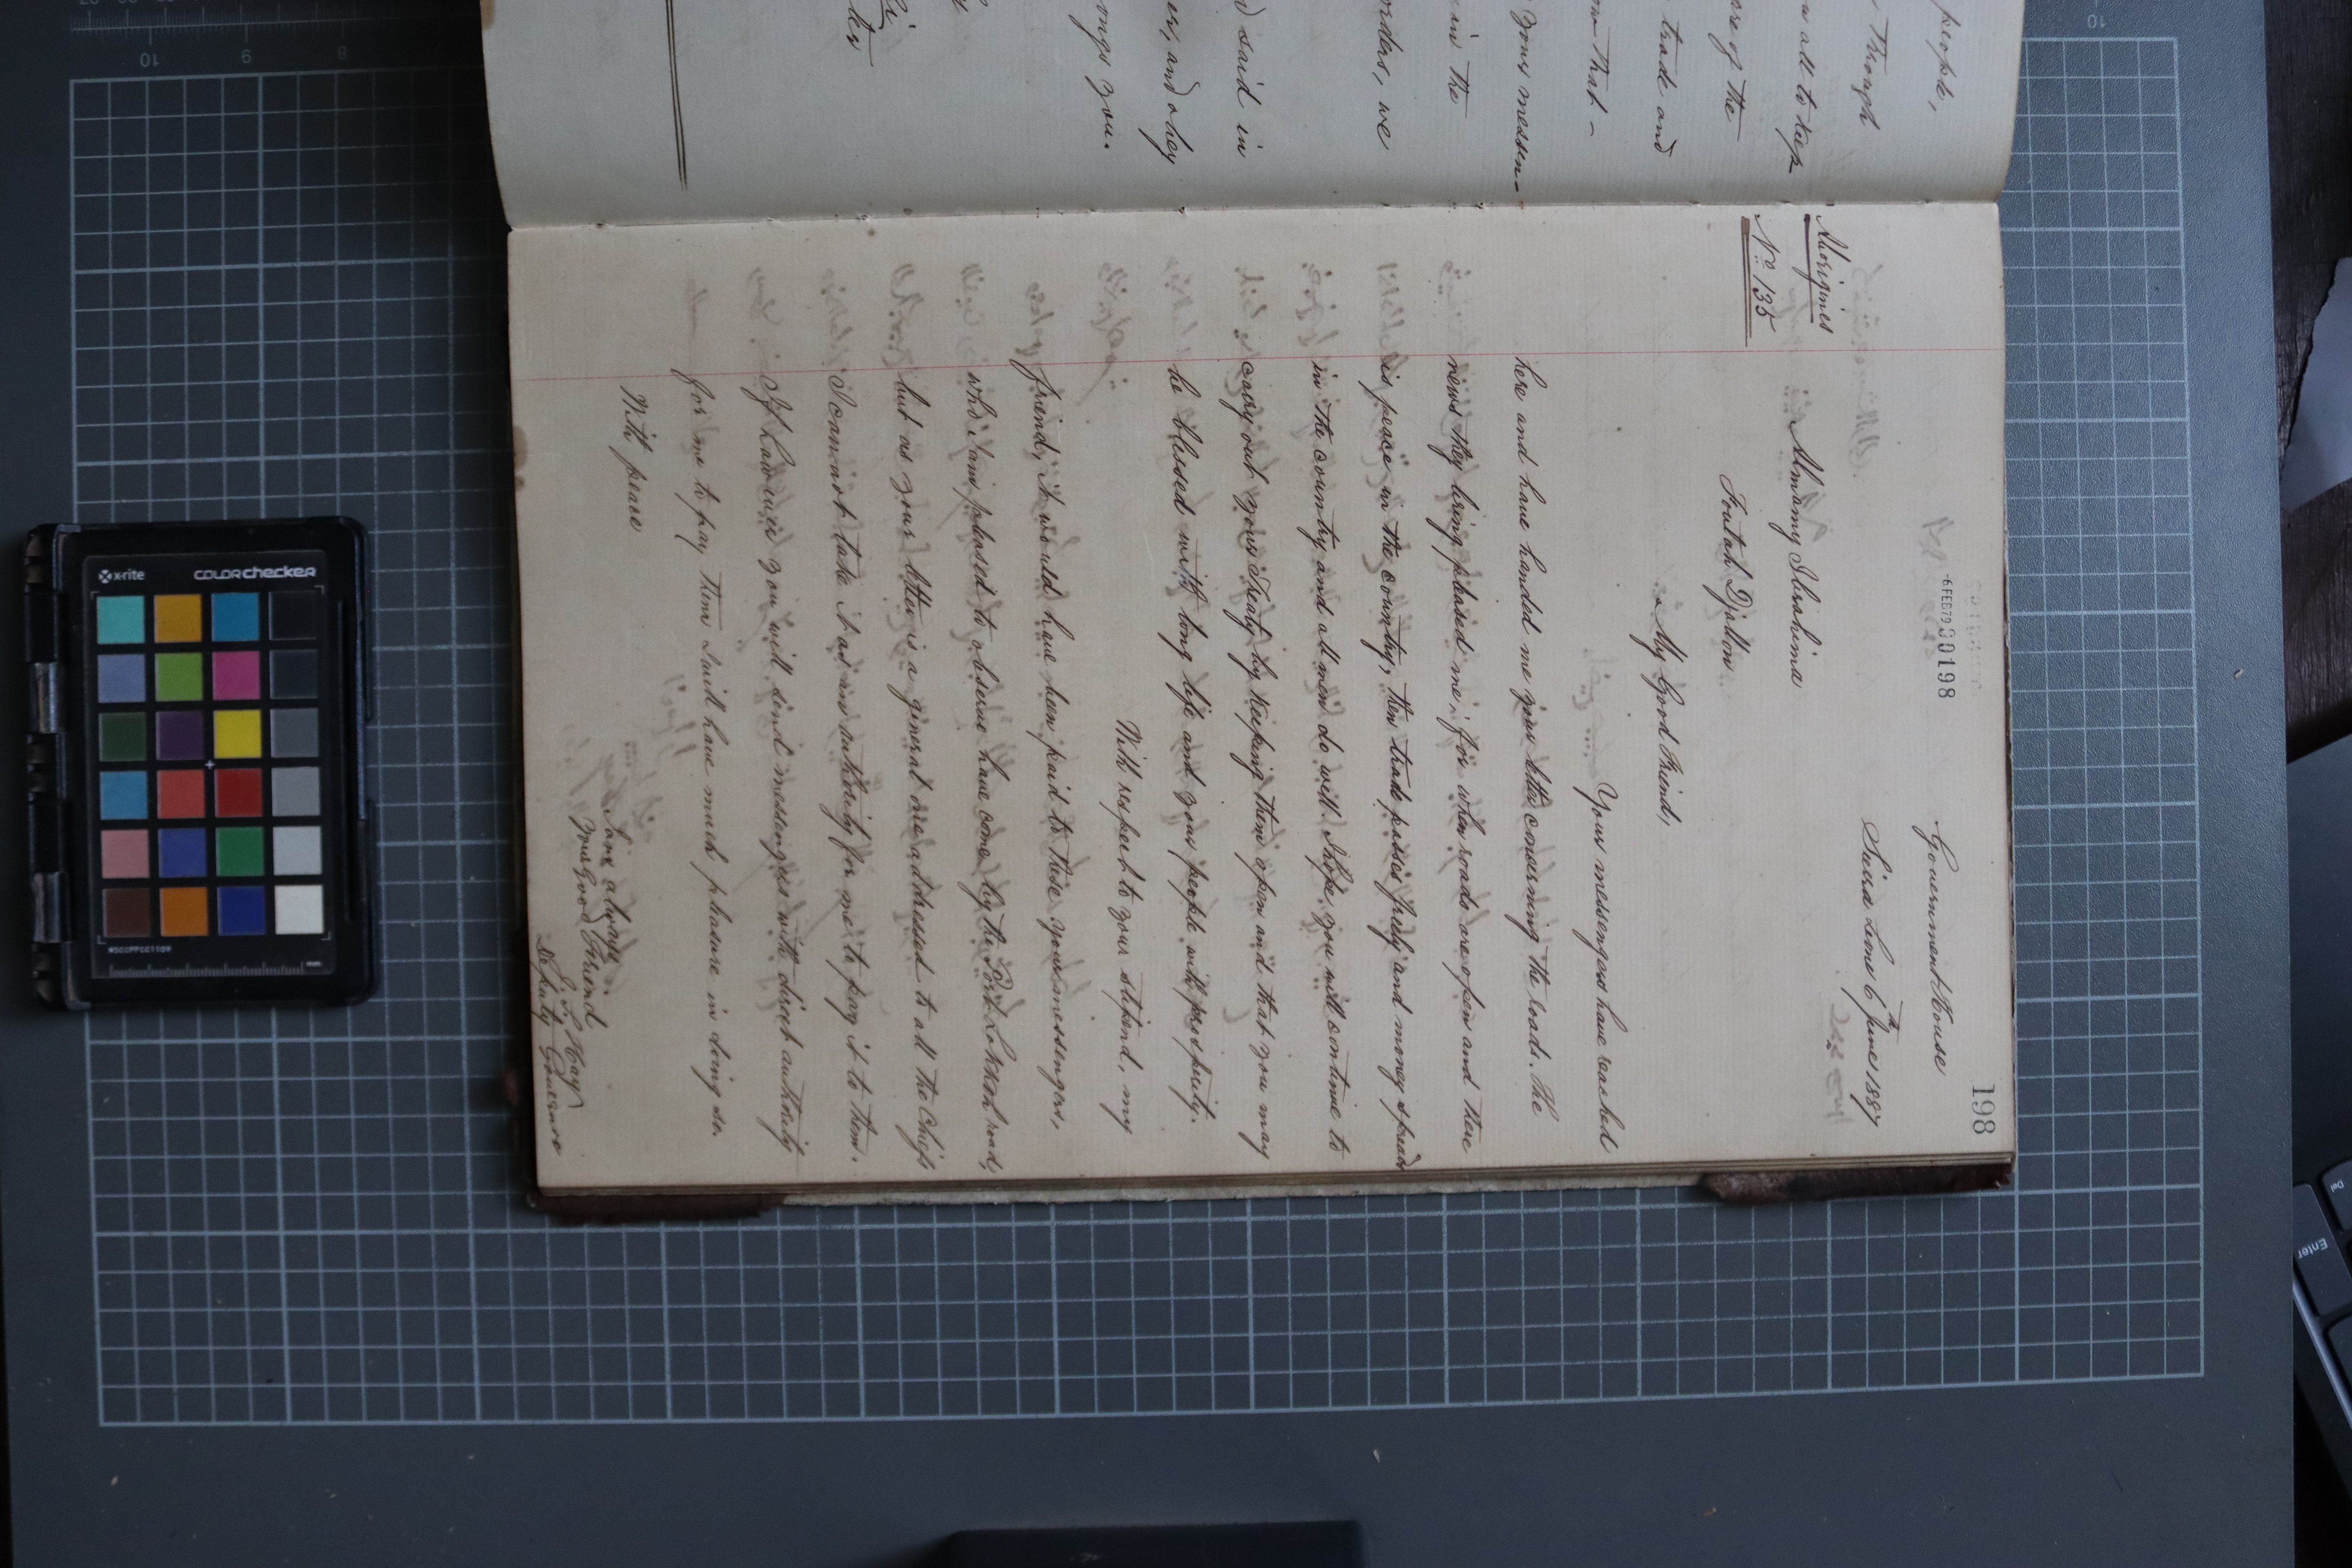 people,
Through
all to keep
are of the
trade and
that -
your messen-
in the
orders, we
said in
and obey
ongs you.
198
-6FEB79 00198
Government House
Sierra Leone 6th June 1887
Aborigines
No 135
Almamy Ibrahima
Foutah Djallon
My Good Friend,
Your messengers have reached
here and have handed me your letter concerning the roads. The
news they bring pleased me, for when roads are open and there
is peace in the country, then trade passes freely and money spreads
in the country and all men do well. I hope you will continue to
carry out your Treaty by keeping them open and that you may
be blessed with long life and your people with prosperity.
With respect to your stipend, my
friend, it would have been paid to these your messengers,
who I am pleased to observe have come by the Port Lokkoh road,
but as your letter is a general one addressed to all the Chiefs
I cannot take it as an authority for me to pay it to them.
If however you will send messengers with direct authority
for me to pay them I will have much pleasure in doing so.
With peace
I am always
Your Good Friend
J. S. Hay
Deputy Governor
x-rite
colorchecker
mm
10
9
8
10
Enter
Del